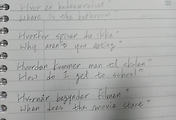 "Hvor er badeværelset"
"Where is the bathroom"
Hvorfor spiser du ikke"
Why aren't you eating"
Hvordan kommer man til skolen"
How do I get to school"
Hvornår begynder filmen"
When does the movie start"